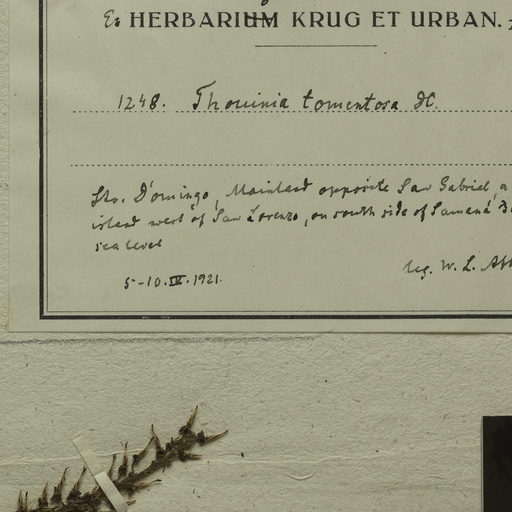 Ex HERBARIUM KRUG ET URBAN.
1248. Thouinia tomentosa DC.
Sto. Domingo, Mainland opposite San Gabriel, a
island west of San Lorenzo, on south side of Samaná
sea level
5-10.IV.1921.
leg. W. L. Abb